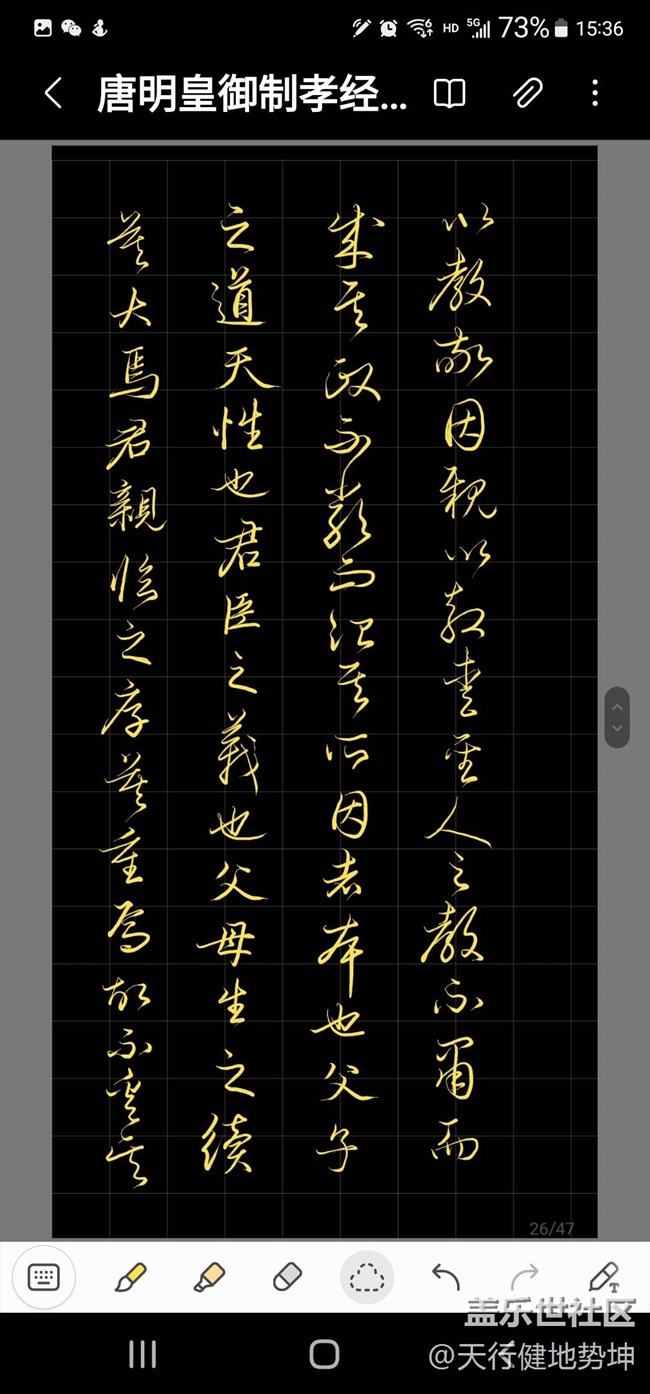 15:36
73%
HD
5G
6
唐明皇御制孝经...
以教敬因親以教愛聖人之教不肅而
成其政不嚴而治其所因者本也父子
之道天性也君臣之義也父母生之續
莫大焉君親臨之厚莫重焉故不愛其
26/47
盖乐世社区
@天行健地势坤